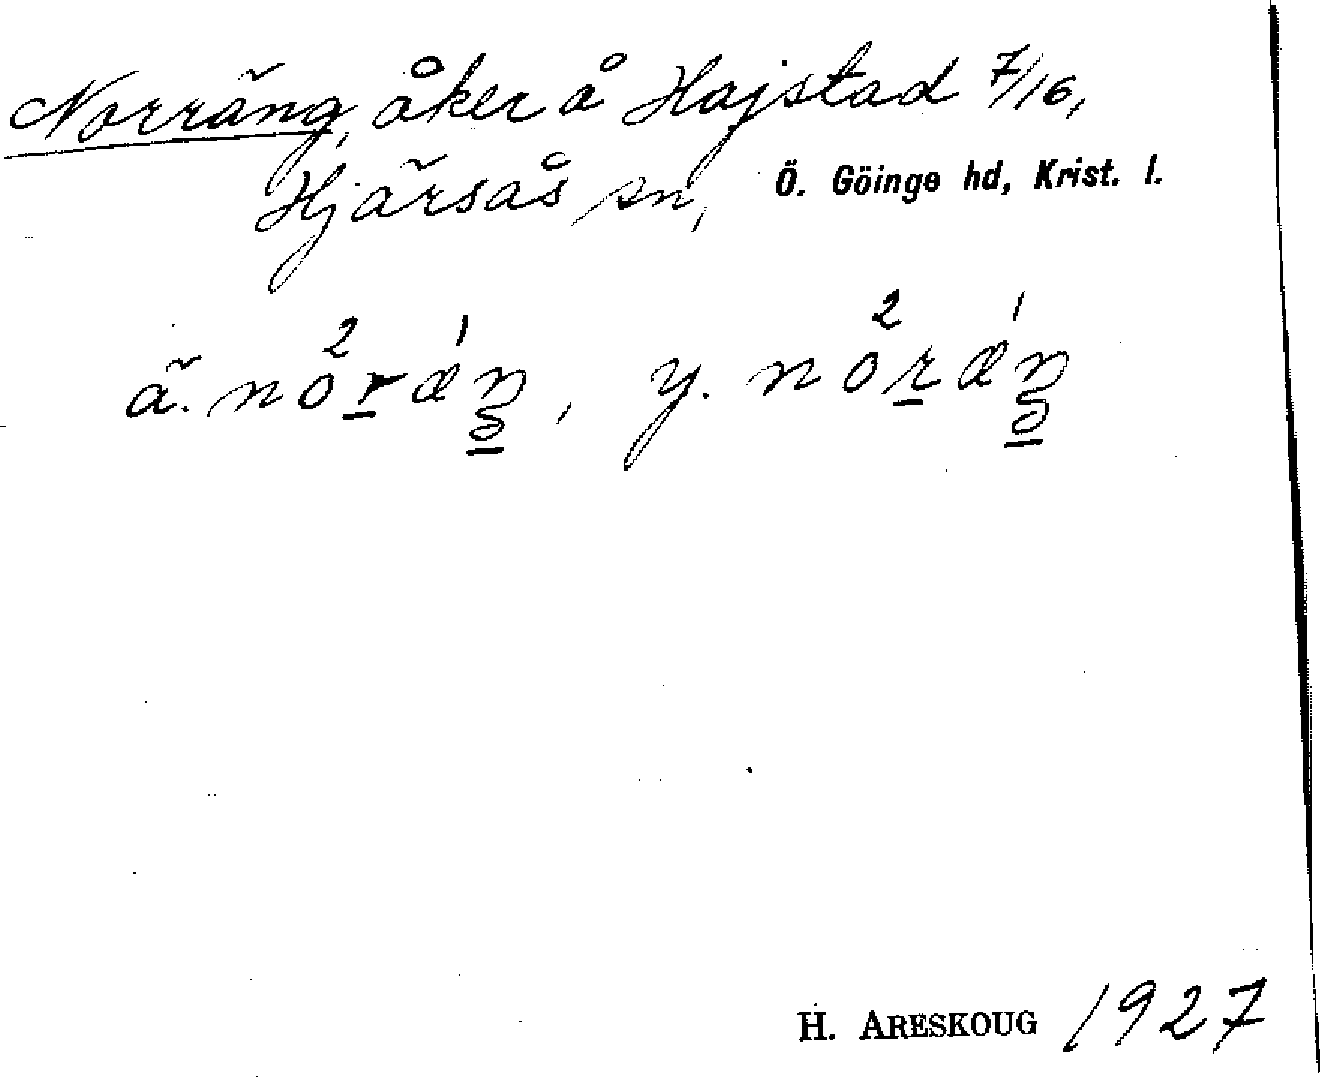 Norräng, åker å Hajstad 7/16,
Hjärsås sn, Ö. Göinge hd, Krist. l.
ä. no²ræ¹ŋ, y. no²ræ¹ŋ
H. ARESKOUG 1927